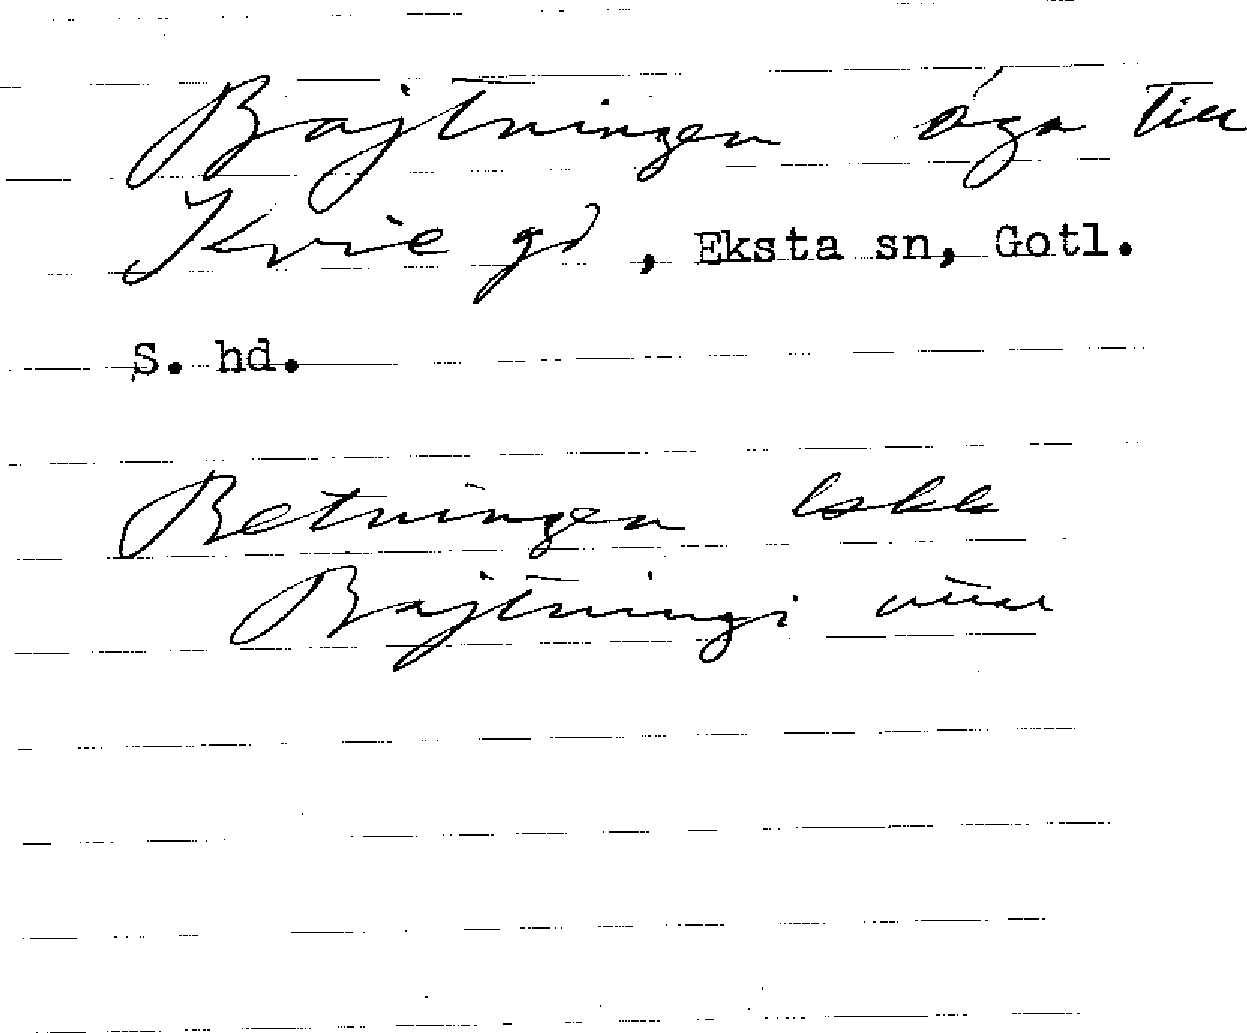 Bajtningen äga till
Kvie gd, Eksta sn, Gotl.
S. hd.
Betningen lskk
Bajtningi